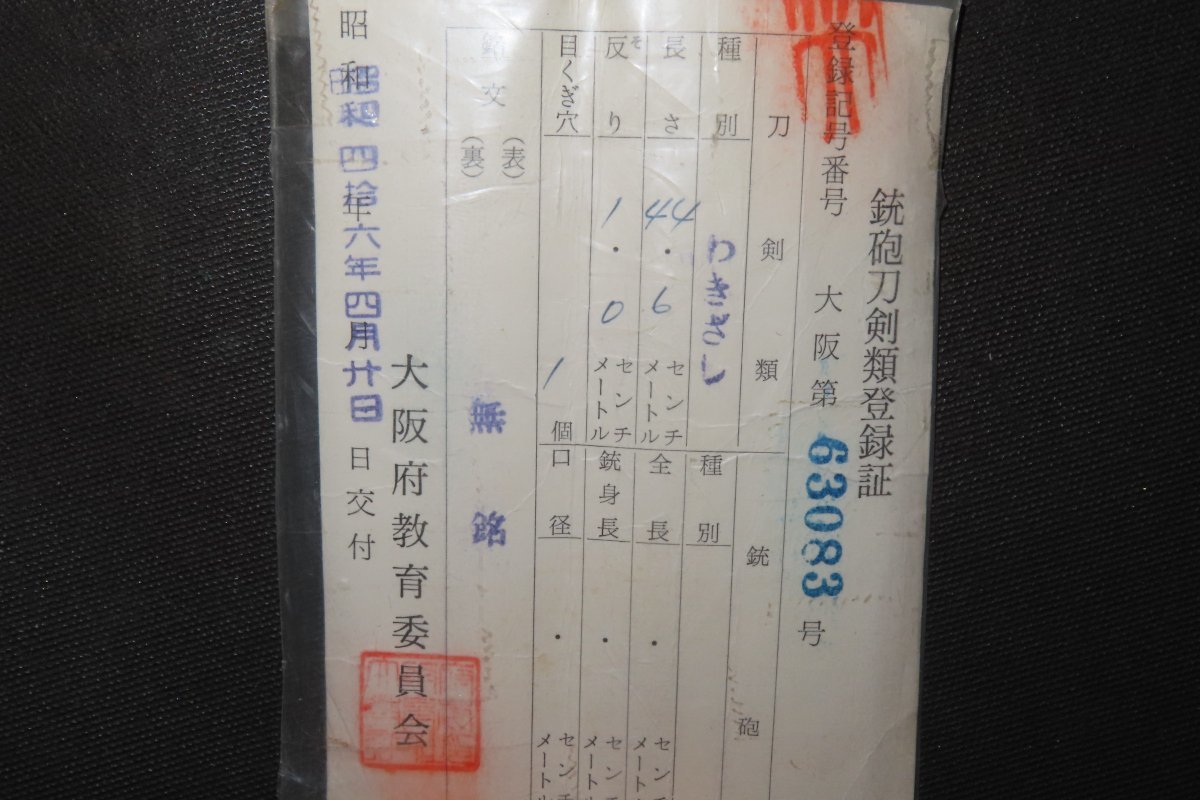 銃砲刀剣類登録証
登録記号番号 大阪第63083号
刀剣類
種別 わきざし
長さ 44.6 センチメートル
反り 1.0 センチメートル
そ
目くぎ穴 1個
銃砲
種別
全長 . センチメートル
銃身長 . センチメートル
口径 . センチメートル
銘文 (表)
(裏)
無銘
大阪府教育委員会
昭和 年 月 日交付
昭和四拾六年四月廿日